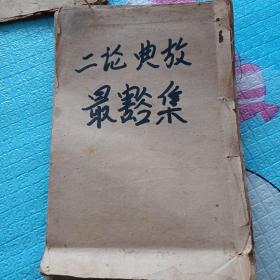 二论典故
最豁集